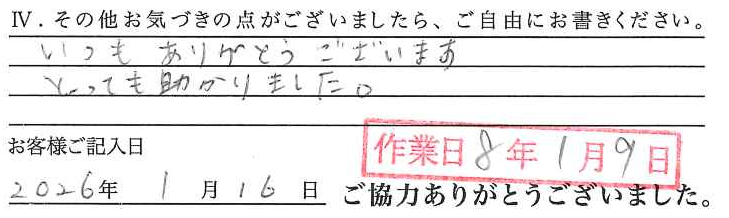 Ⅳ．その他お気づきの点がございましたら、ご自由にお書きください。
いつもありがとうございます
とっても助かりました。
お客様ご記入日
作業日8年1月9日
2026年1月16日 ご協力ありがとうございました。